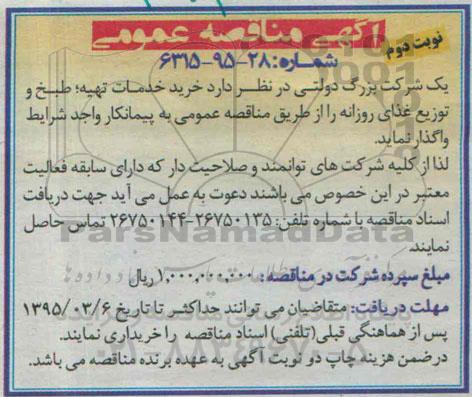 آگهی مناقصه عمومی
نوبت دوم
شماره: ۲۸-۹۵-۶۳۱۵
یک شرکت بزرگ دولتی در نظر دارد خرید خدمات تهیه؛ طبخ و
توزیع غذای روزانه را از طریق مناقصه عمومی به پیمانکار واجد شرایط
واگذار نماید.
لذا از کلیه شرکت های توانمند و صلاحیت دار که دارای سابقه فعالیت
معتبر در این خصوص می باشند دعوت به عمل می آید جهت دریافت
اسناد مناقصه با شماره تلفن: ۲۶۷۵۰۱۳۵-۲۶۷۵۰۱۴۴ تماس حاصل
نمایند.
ParsNamadData
مبلغ سپرده شرکت در مناقصه: ۱,۰۰۰,۰۰۰,۰۰۰ ریال
مهلت دریافت: متقاضیان می توانند حداکثر تا تاریخ ۱۳۹۵/۰۳/۶
پس از هماهنگی قبلی (تلفنی) اسناد مناقصه را خریداری نمایند.
در ضمن هزینه چاپ دو نوبت آگهی به عهده برنده مناقصه می باشد.